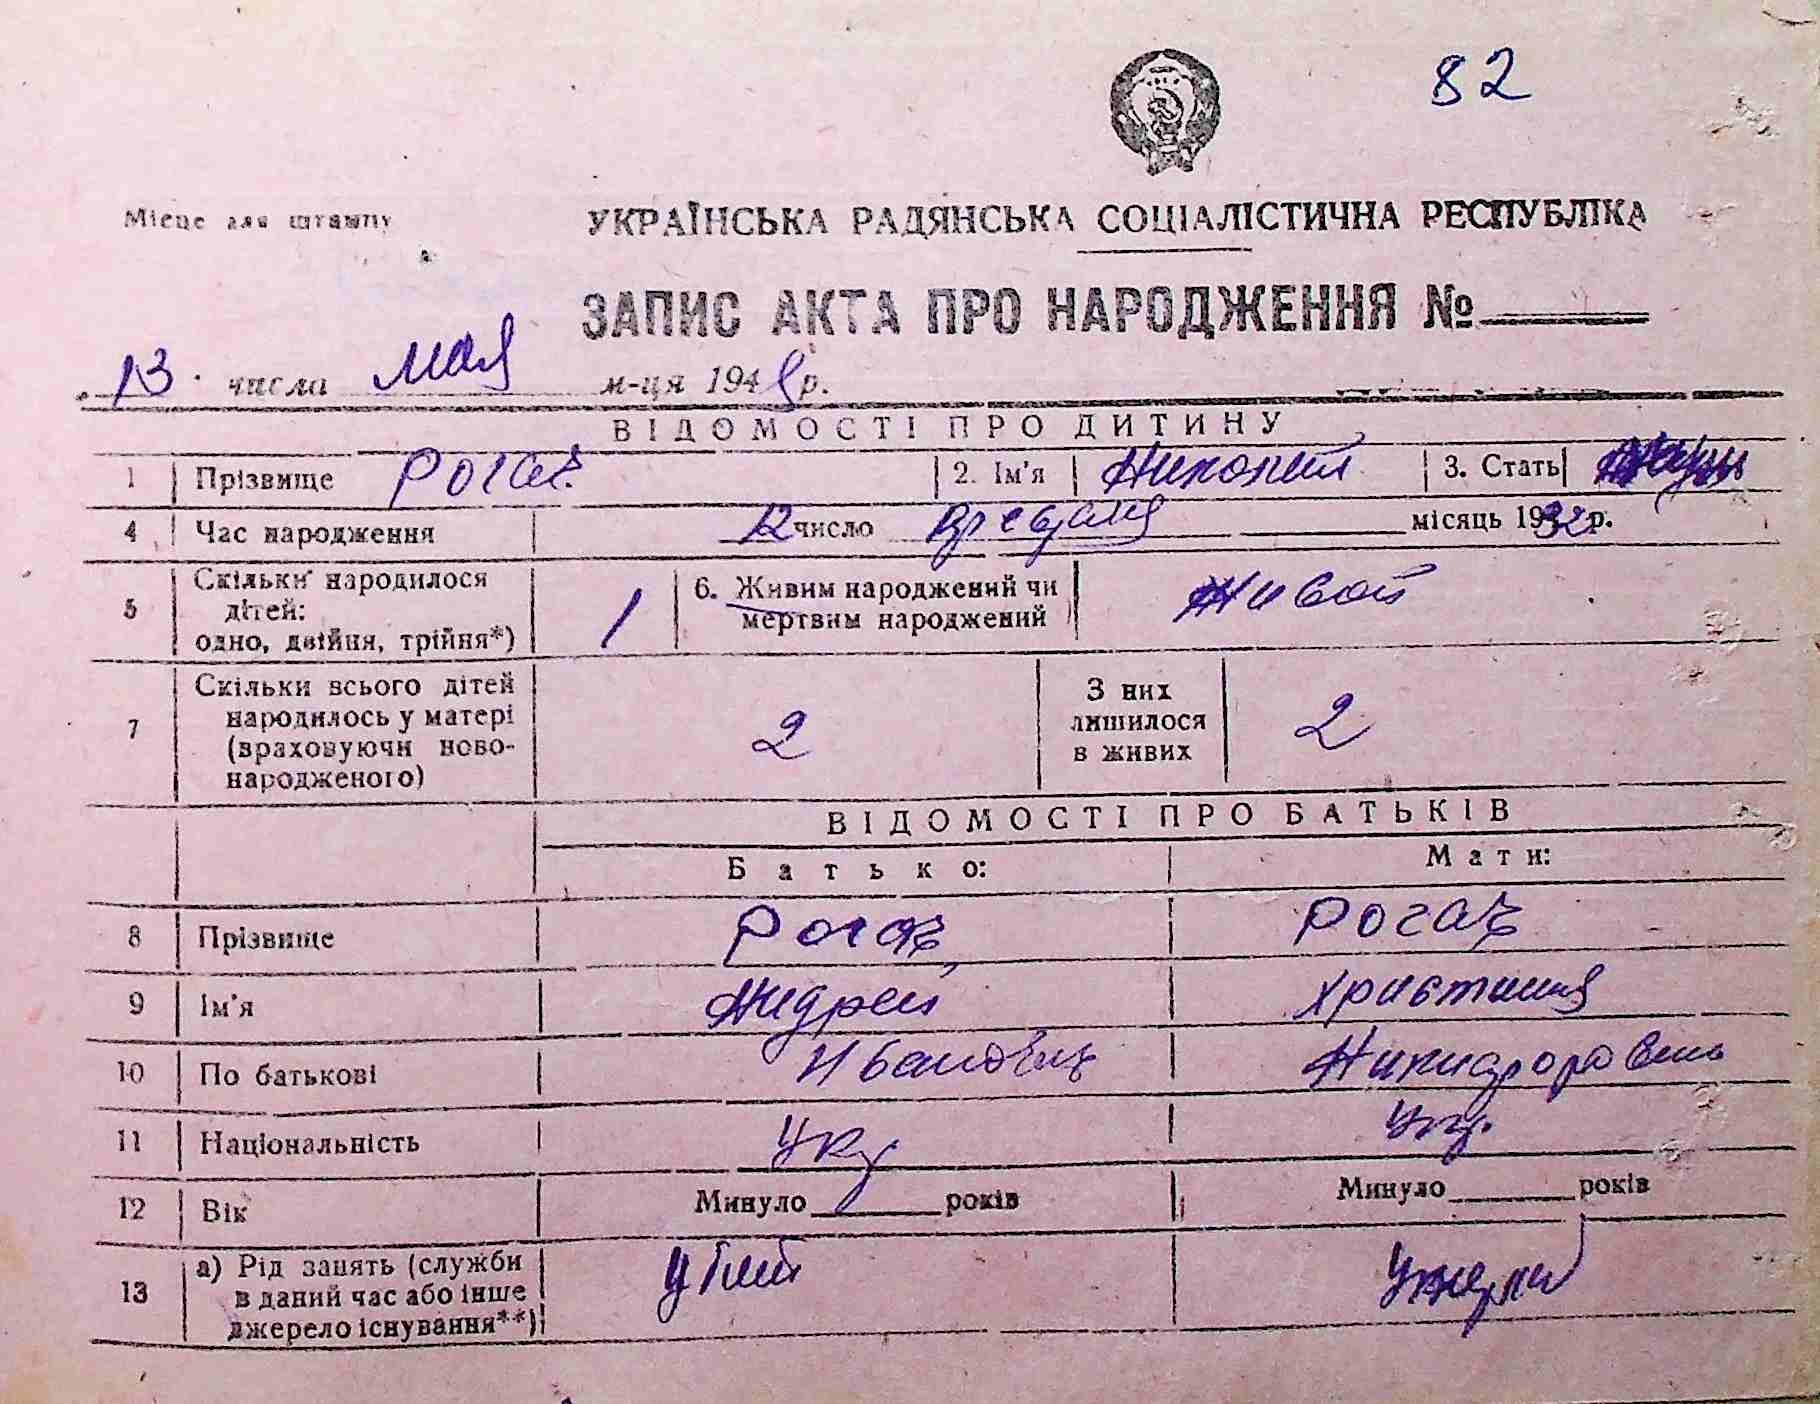 82
Місце для штампу
УКРАЇНСЬКА РАДЯНСЬКА СОЦІАЛІСТИЧНА РЕСПУБЛІКА
ЗАПИС АКТА ПРО НАРОДЖЕННЯ №
13 числа мая м-ця 194 р.
ВІДОМОСТІ ПРО ДИТИНУ
1 Прізвище Рогач 2. Ім'я 3. Стать
4 Час народження 12 число місяць 19 р.
5 Скільки народилося дітей: одно, двійня, трійня*) 1 6. Живим народжений чи мертвим народжений Живой
7 Скільки всього дітей народилось у матері (враховуючи новонародженого) 2 З них лишилося в живих 2
ВІДОМОСТІ ПРО БАТЬКІВ
Батько: Мати:
8 Прізвище Рогач Рогач
9 Ім'я Андрей Християя
10 По батькові Никифоровень
11 Національність Укр Укр.
12 Вік Минуло років Минуло років
13 а) Рід занять (служби в даний час або інше джерело існування**) Убит Умерла